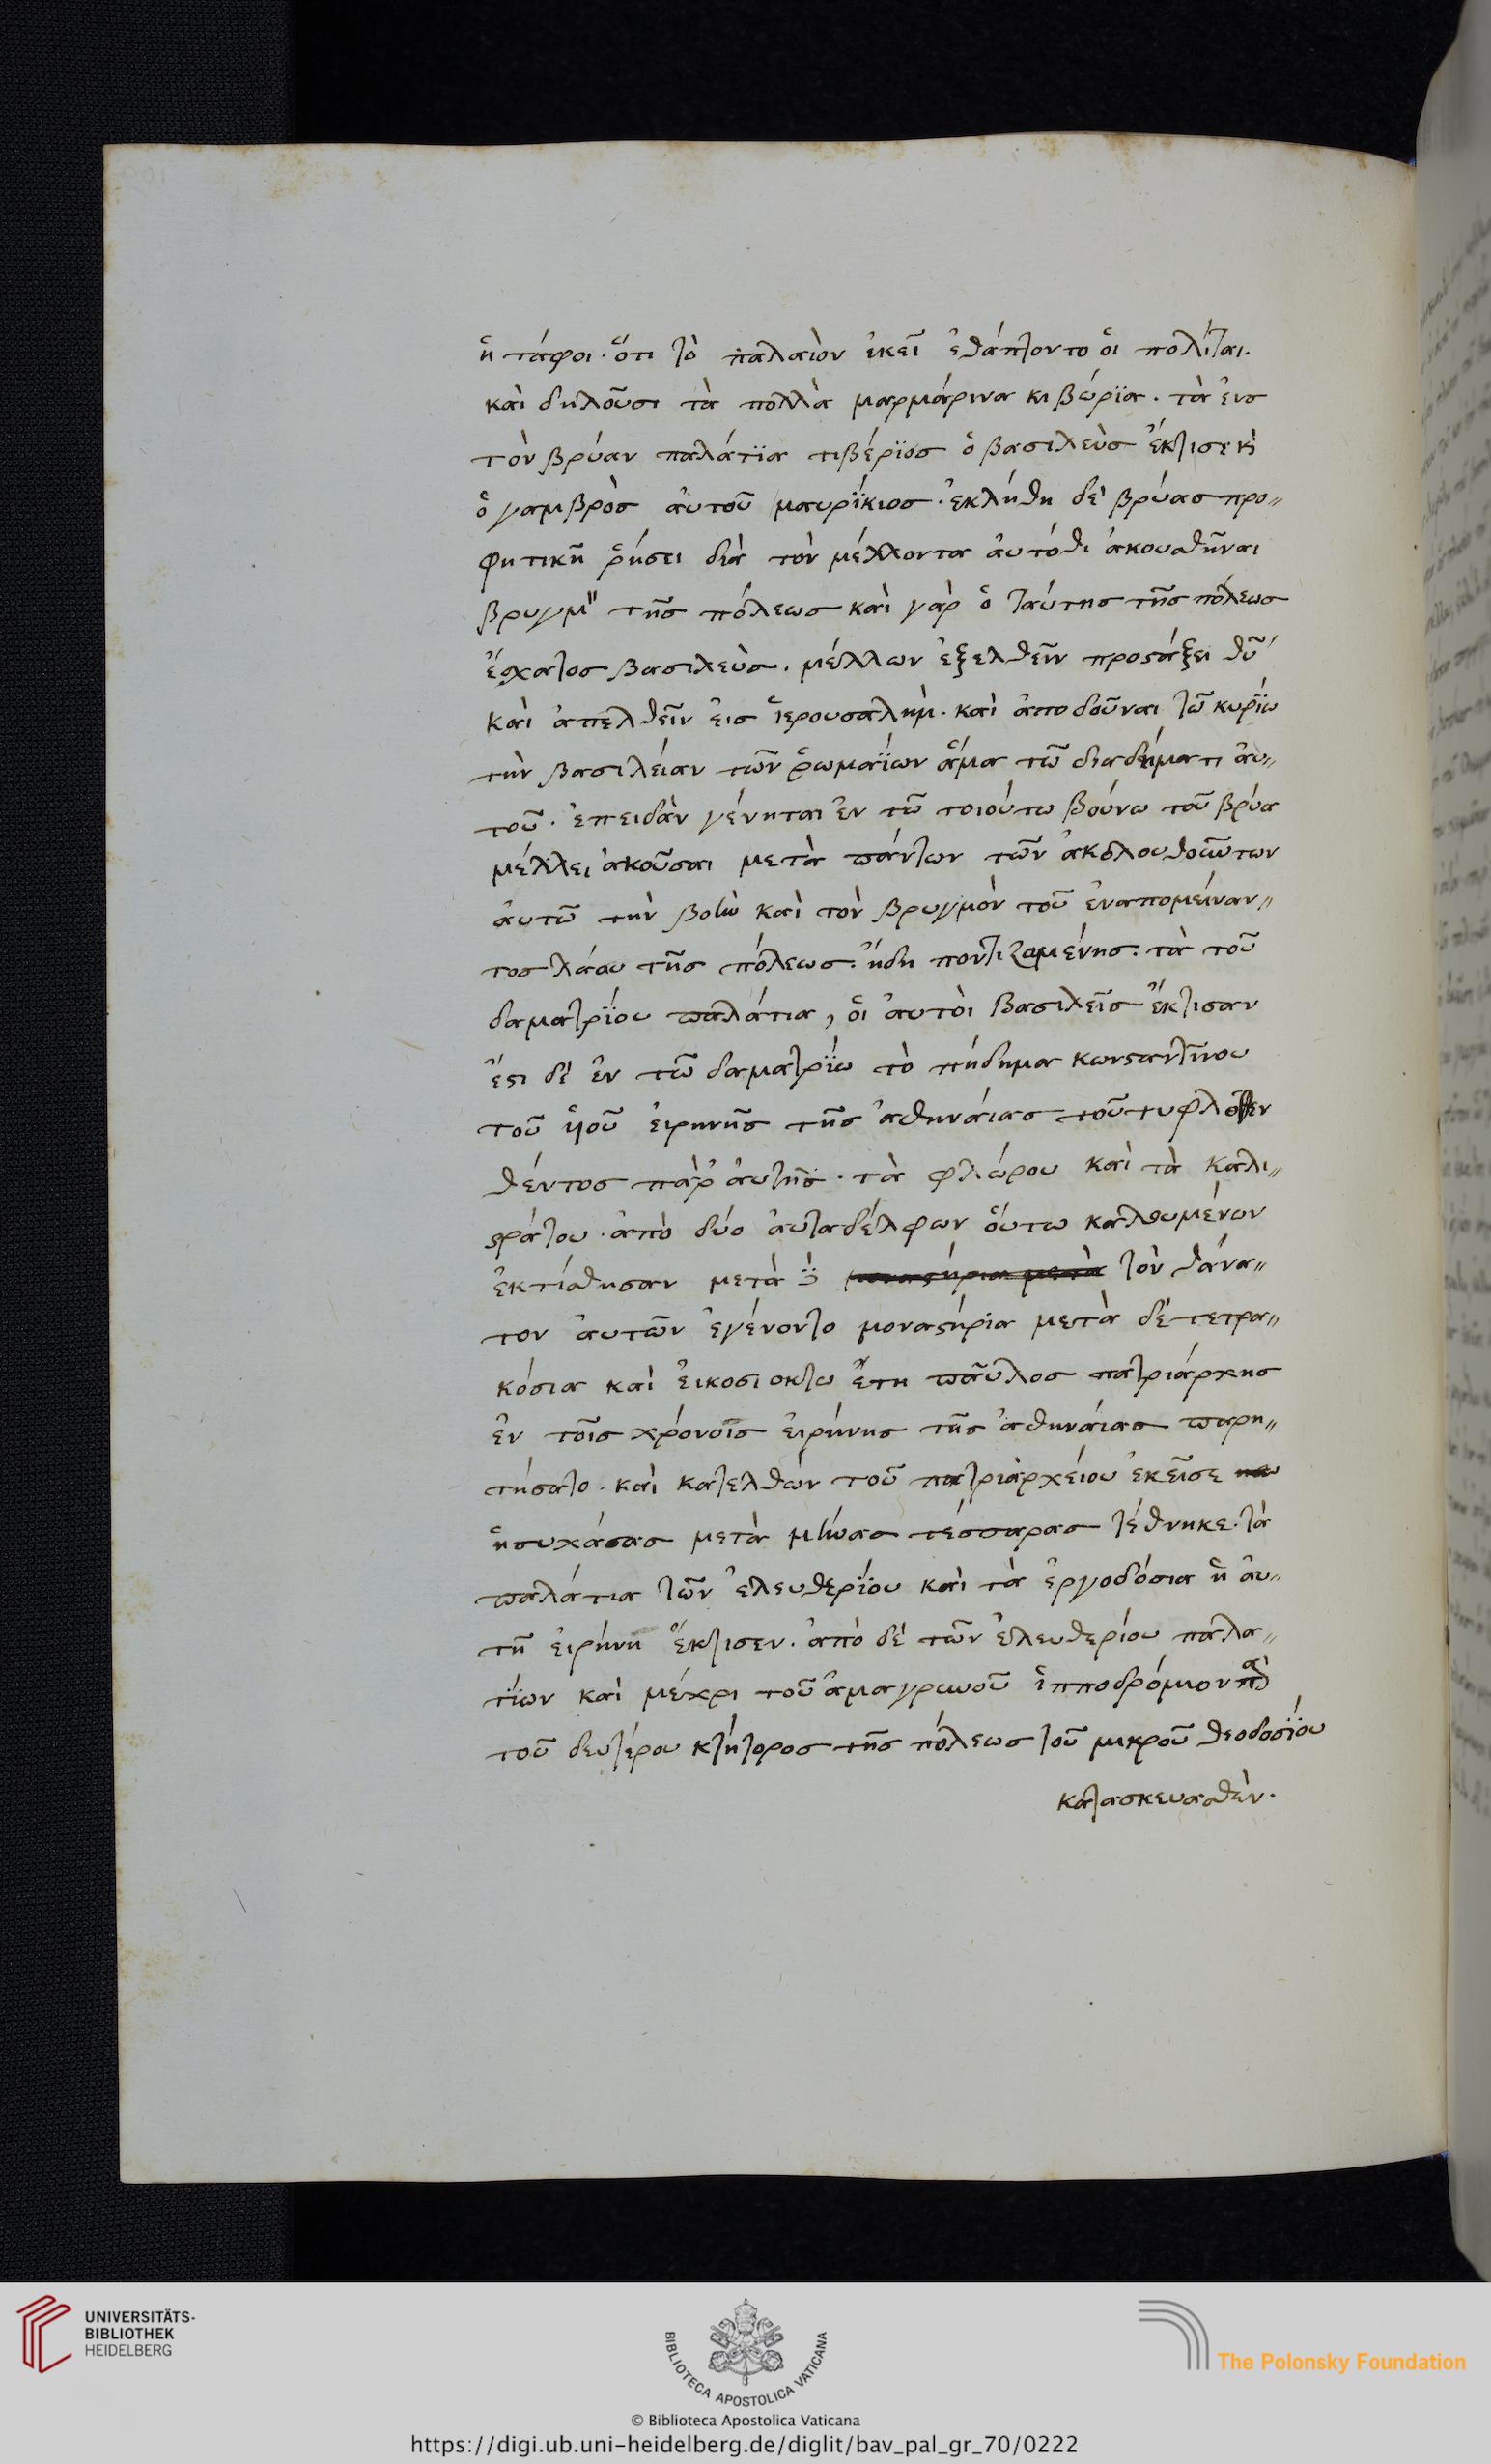 ἢ τάφοι· ὅτι τὸ παλαιὸν ἐκεῖ ἐθάπτοντο ὁι πολίται.
καὶ δηλοῦσι τὰ πολλὰ μαρμάρινα κιβώρϊα. τὰ ἐις
τὸν βρύαν παλάτϊα τιβέρϊος ὁ βασιλεὺς ἔκτισε κὶ
ὁ γαμβρὸς ἀυτοῦ μαυρΐκιος. ἐκλήθη δὲ βρύας προ„
φητικῆ ῥήσει διὰ τὸν μέλλοντα ἀυτόθι ἀκουσθῆναι
βρυγμ" τῆς πόλεως καὶ γὰρ ὁ ταύτης τῆς πόλεως
ἔσχατος βασιλεὺς. μέλλων ἐξελθεῖν προστάξει θῦ
καὶ ἀπελθεῖν ἐις ἱερουσαλὴμ. καὶ ἀποδοῦναι τῶ κυρΐω
τὴν βασιλείαν τῶν ῥωμαΐων ἅμα τῶ διαδήματι ἀυ„
τοῦ. ἐπειδὰν γένηται ἐν τῶ τοιούτω βούνω τοῦ βρύα
μέλλει ἀκοῦσαι μετὰ πάντων τῶν ἀκολουθούντων
ἀυτῶ τὴν βοὴν καὶ τὸν βρυγμὸν τοῦ ἐναπομείναν„
τος λάου τῆς πόλεως. ἤδη ποντιζαμένης. τὰ τοῦ
δαματρΐου παλάτια, ὁι ἀυτὸι βασιλεῖς ἔκτισαν
ἔστι δὲ ἐν τῶ δαματρΐω τὸ πήδημα κωνσταντῖνου
τοῦ ὑοῦ ἐιρηνῆς τῆς ἀθηνάιας τοῦ τυφλωθεν
θέντος πὰρ ἀυτῆς. τὰ φλώρου καὶ τὰ καλι„
στράτου. ἀπὸ δύο ἀυταδέλφων ὅυτω καλουμένων
ἐκτίσθησαν μετὰ δὲ μοναστήρια μετὰ τὸν θάνα„
τον ἀυτῶν ἐγένοντο μοναστήρϊα μετὰ δὲ τετρα„
κόσια καὶ ἐικοσιοκτω ἔτη παῦλος πατριάρχης
ἐν τοῖς χρόνοις ἐιρήνης τῆς ἀθηνάιας παρη„
τήσατο. καὶ κατελθὼν τοῦ πατριαρχείου ἐκεῖσε
ἡσυχάσας μετὰ μῆνας τέσσαρας τέθνηκε. τὰ
παλάτια τῶν ἐλευθερΐου καὶ τὰ ἐργοδόσια ἡ ἀυ„
τὴ ἐιρήνη ἔκτισεν. ἀπὸ δὲ τῶν ἐλευθερίου παλα„
τΐων καὶ μέχρι τοῦ ἀμαγρωοῦ ἱπποδρόμιον πὰ
τοῦ δευτέρου κτήτορος τῆς πόλεως τοῦ μικροῦ θεοδοσΐου
κατασκευασθὲν.
UNIVERSITÄTS-
BIBLIOTHEK
HEIDELBERG
BIBLIOTECA APOSTOLICA VATICANA
The Polonsky Foundation
© Biblioteca Apostolica Vaticana
https://digi.ub.uni-heidelberg.de/diglit/bav_pal_gr_70/0222